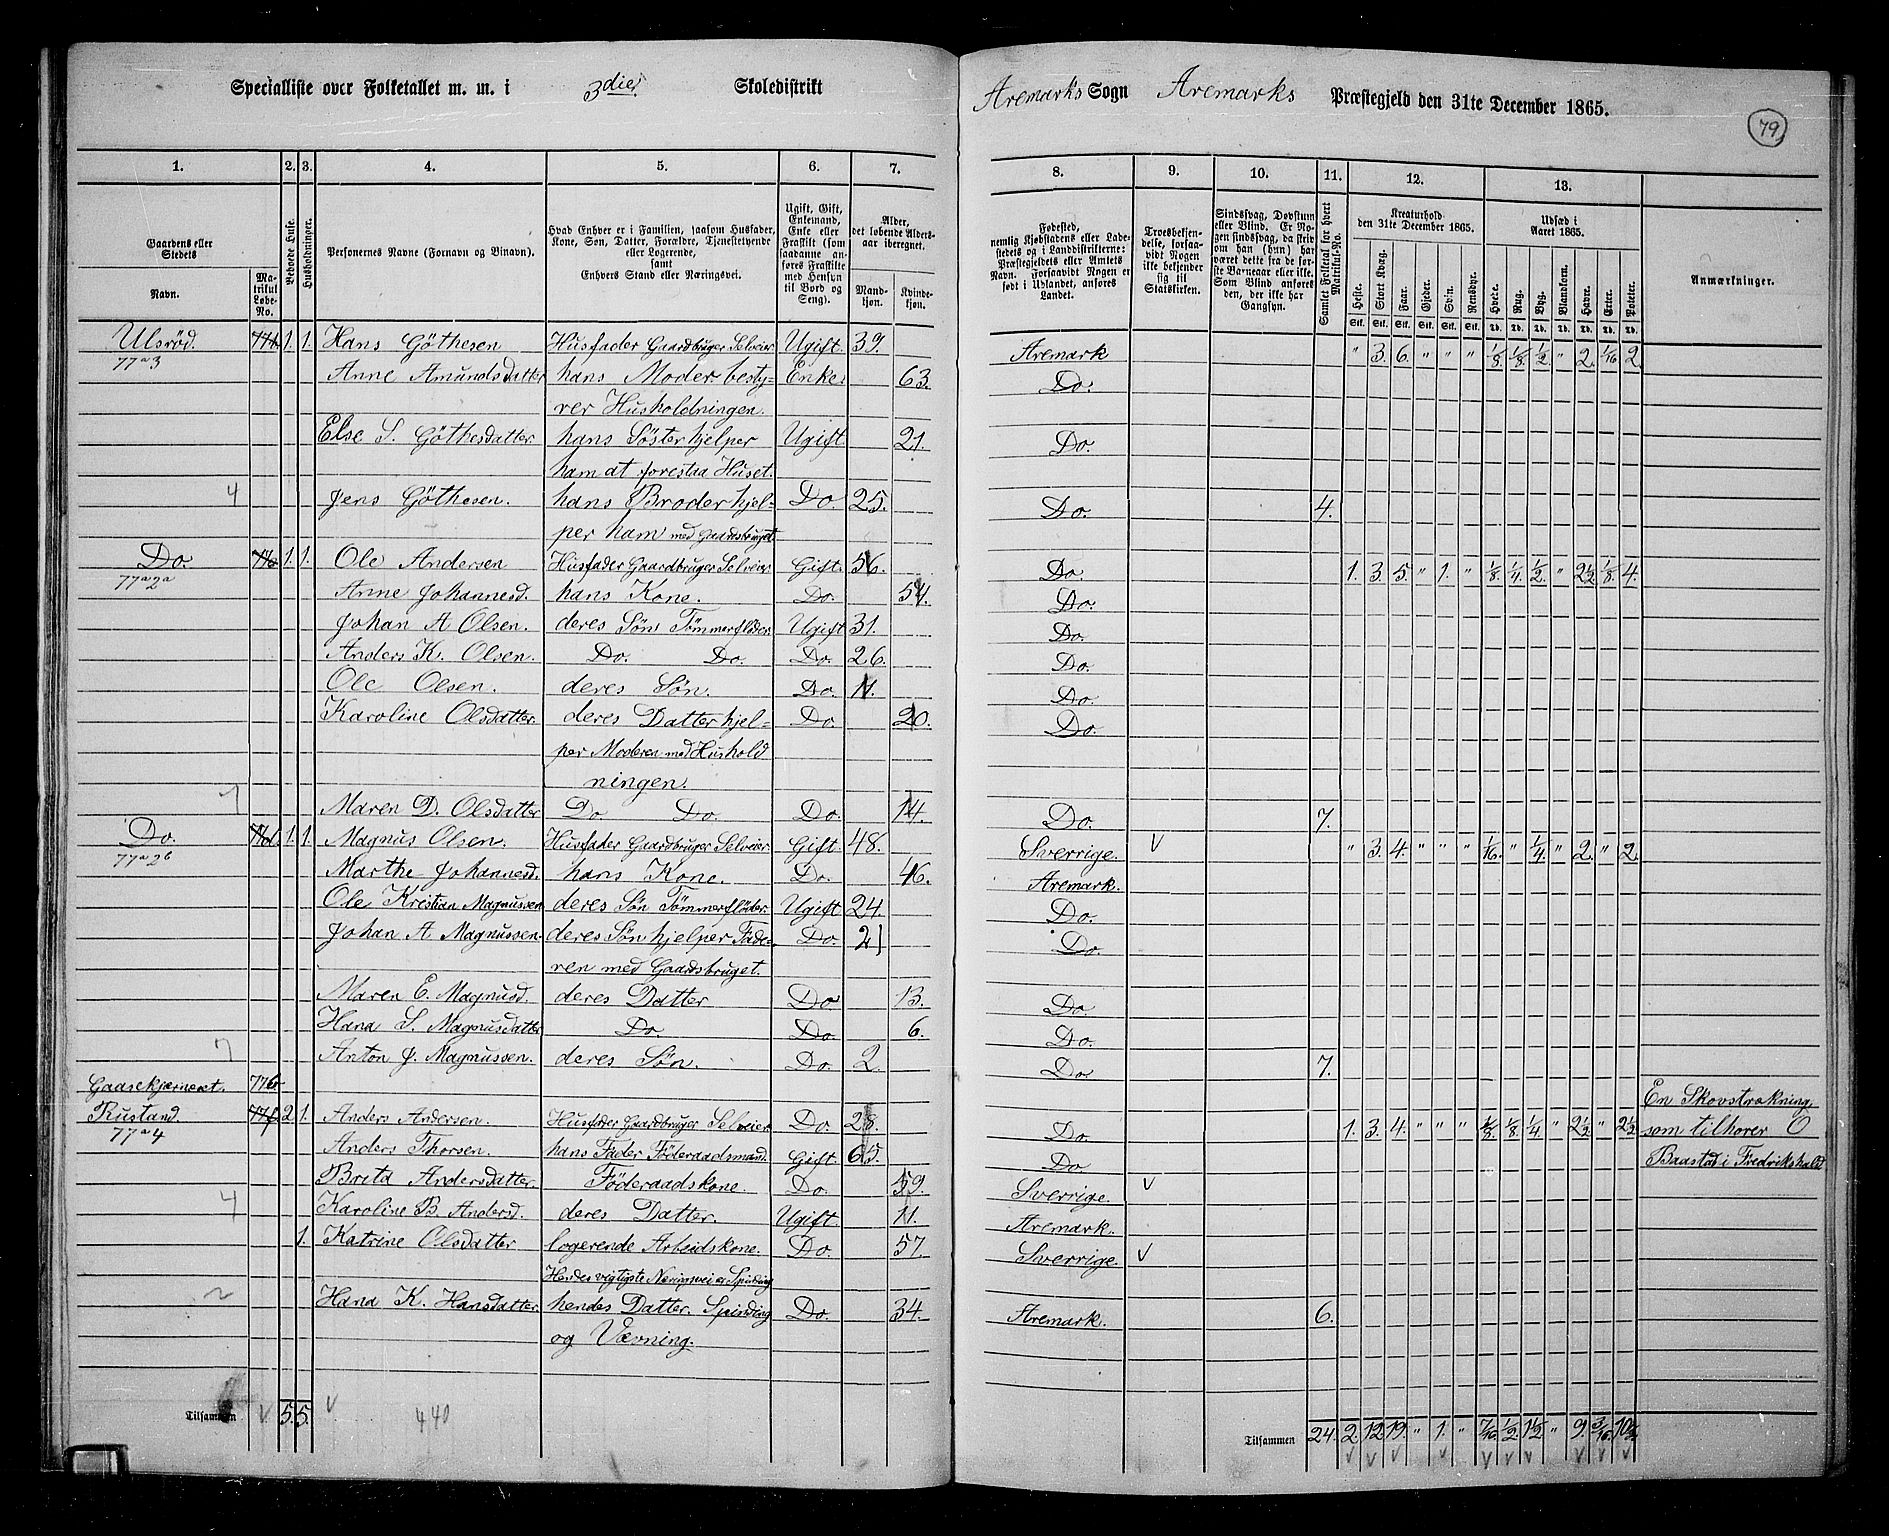 Specialliste over Folketallet m. m. i 3dies Skoledistrikt
Aremarks Sogn Aremarks Præstegjeld den 31te December 1865.
79
1. 2. 3. 4. 5. 6. 7.
8. 9. 10. 11. 12. 13.
Gaardens eller Stedets
Navn.
Matrikul Løbe-No.
Beboede Huse.
Husholdninger.
Personernes Navne (Fornavn og Binavn).
Hvad Enhver er i Familien, saasom Husfader, Kone, Søn, Datter, Forældre, Tjenestetyende eller Logerende, samt Enhvers Stand eller Næringsvei.
Ugift, Gift, Enkemand, Enke eller Fraskilt (som saadanne anføres Fraskilte med Hensyn til Bord og Seng).
Alder, det løbende Aldersaar iberegnet.
Mandkjøn.
Kvindekjøn.
Fødested, nemlig Kjøbstadens eller Ladestedets og i Landdistrikterne: Præstegjeldets eller Amtets Navn. Forsaavidt Nogen er født i Udlandet, anføres Landet.
Troesbekjendelse, forsaavidt Nogen ikke bekjender sig til Statskirken.
Sindssvag, Døvstum eller Blind. Er Nogen sindssvag, da skriv om han (hun) har været dette fra de første Barneaar eller ikke. Som Blind anføres den, der ikke har Gangsyn.
Samlet Folketal for hvert Matrikul-No.
Kreaturhold den 31te December 1865.
Heste. Stort Kvæg. Faar. Gjeder. Svin. Rensdyr.
Udsæd i Aaret 1865.
Hvede. Rug. Byg. Blandkorn. Havre. Erter. Poteter.
Anmærkninger.
Ulsrød. 1. 1. Hans Gøthesen Husfader Gaardbruger Selveier Ugift 39. Aremark " 3. 6. " " " 1/8. 1/8. 1/2 " 2. 1/16 2
77a3 Anne Amundsdatter hans Moder besty- Enke. 63. Do.
rer Husholdningen.
Else S. Gøthesdatter hans Søster hjelper Ugift 21. Do.
ham at forestaa Huset.
4 Jens Gøthesen. hans Broder hjel- Do. 25. Do. 4.
per ham med Gaardsbruget.
Do. 1. 1. Ole Andersen Husfader Gaardbruger Selveier Gift. 56. Do. 1. 3. 5. " 1. " 1/8. 1/4. 1/2. " 2 1/2 1/8. 4.
77a2a Anne Johannesd. hans Kone. Do. 54. Do.
Johan A Olsen. deres Søn Tømmerfløder Ugift 31. Do.
Anders K. Olsen. Do. Do. Do. 26. Do.
Ole Olsen. deres Søn. Do. 11. Do.
Karoline Olsdatter deres Datter hjel- Do. 20. Do.
per Moderen med Hushold
ningen.
7 Maren D. Olsdatter Do Do. Do. 14. Do. 7.
Do. 1. 1. Magnus Olsen. Husfader Gaardbruger Selveier. Gift 48. Sverrige. V " 3. 4. " " " 1/16. " 1/4. " 2. " 2
77a2b Marthe Johannesd. hans Kone. Do. 46. Aremark.
Ole Kristian Magnussen deres Søn Tømmerfløder. Ugift 24. Do.
Johan A Magnussen. deres Søn hjelper Fade- Do. 21 Do.
ren med Gaardsbruget.
Maren E. Magnusd. deres Datter Do 13. Do
Hana S. Magnusdatter Do Do. 6. Do.
7 Anton J. Magnussen. deres Søn. Do. 2. Do 7.
Gaasekjerneret. 77b En Skovstrækning,
Rustand. 2. 1. Anders Andersen. Husfader Gaardbruger Selveier Do. 28. Do. 1. 3. 4. " " " 1/8. 1/8. 1/4. " 2 1/2 " 2 1/2 som tilhører O
77a4 Anders Thorsen. hans Fader Føderaadsmand. Gift. 65. Do Baastad i Fredrikshald
Brita Andersdatter. Føderaadskone. Do. 59. Sverrige. V
4 Karoline B. Andersd. deres Datter. Ugift 11. Aremark.
1. Katrine Olsdatter logerende Arbeidskone. Do. 57. Sverrige. V
Hendes vigtigste Næringsvei er Spinding
2 Hana K. Hansdatter. hendes Datter. Spinding Do. 34. Aremark. 6.
og Vævning.
Tilsammen V 5. 5. V 440
Tilsammen 24. 2. 12 19. " 1. " 7/16 1/2 1 1/2 " 9. 3/16. 10 1/2